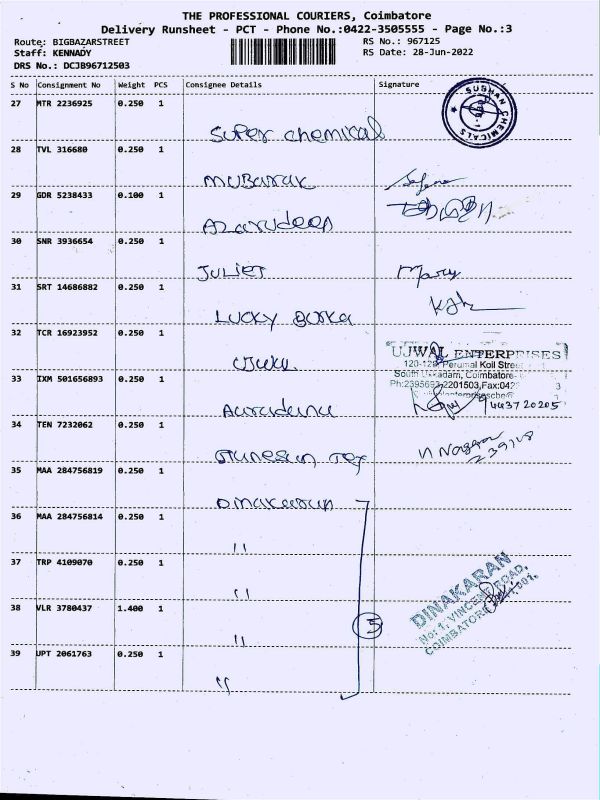 THE PROFESSIONAL COURIERS, Coimbatore
Delivery Runsheet - PCT - Phone No.:0422-3505555 - Page No.:3
Route: BIGBAZARSTREET
RS No.: 967125
Staff: KENNADY
RS Date: 28-Jun-2022
DRS No.: DCJB96712503
S No Consignment No Weight PCS Consignee Details Signature
27 MTR 2236925 0.250 1
Super chemical
SUBHAN CHEMICALS
28 TVL 316680 0.250 1
MUBARAK
29 GDR 5238433 0.100 1
Azarudeen
30 SNR 3936654 0.250 1
JULIET
Mary
31 SRT 14686882 0.250 1
LUCKY BURKA
32 TCR 16923952 0.250 1
UJWAL ENTERPRISES
120-129, Perumal Koil Street
South Ukkadam, Coimbatore
33 IXM 501656893 0.250 1
9443720205
34 TEN 7232062 0.250 1
Tex
35 MAA 284756819 0.250 1
36 MAA 284756814 0.250 1
"
37 TRP 4109070 0.250 1
"
DINAKARAN
No: 1, VINCENT ROAD,
COIMBATORE
38 VLR 3780437 1.400 1
"
5
39 UPT 2061763 0.250 1
"